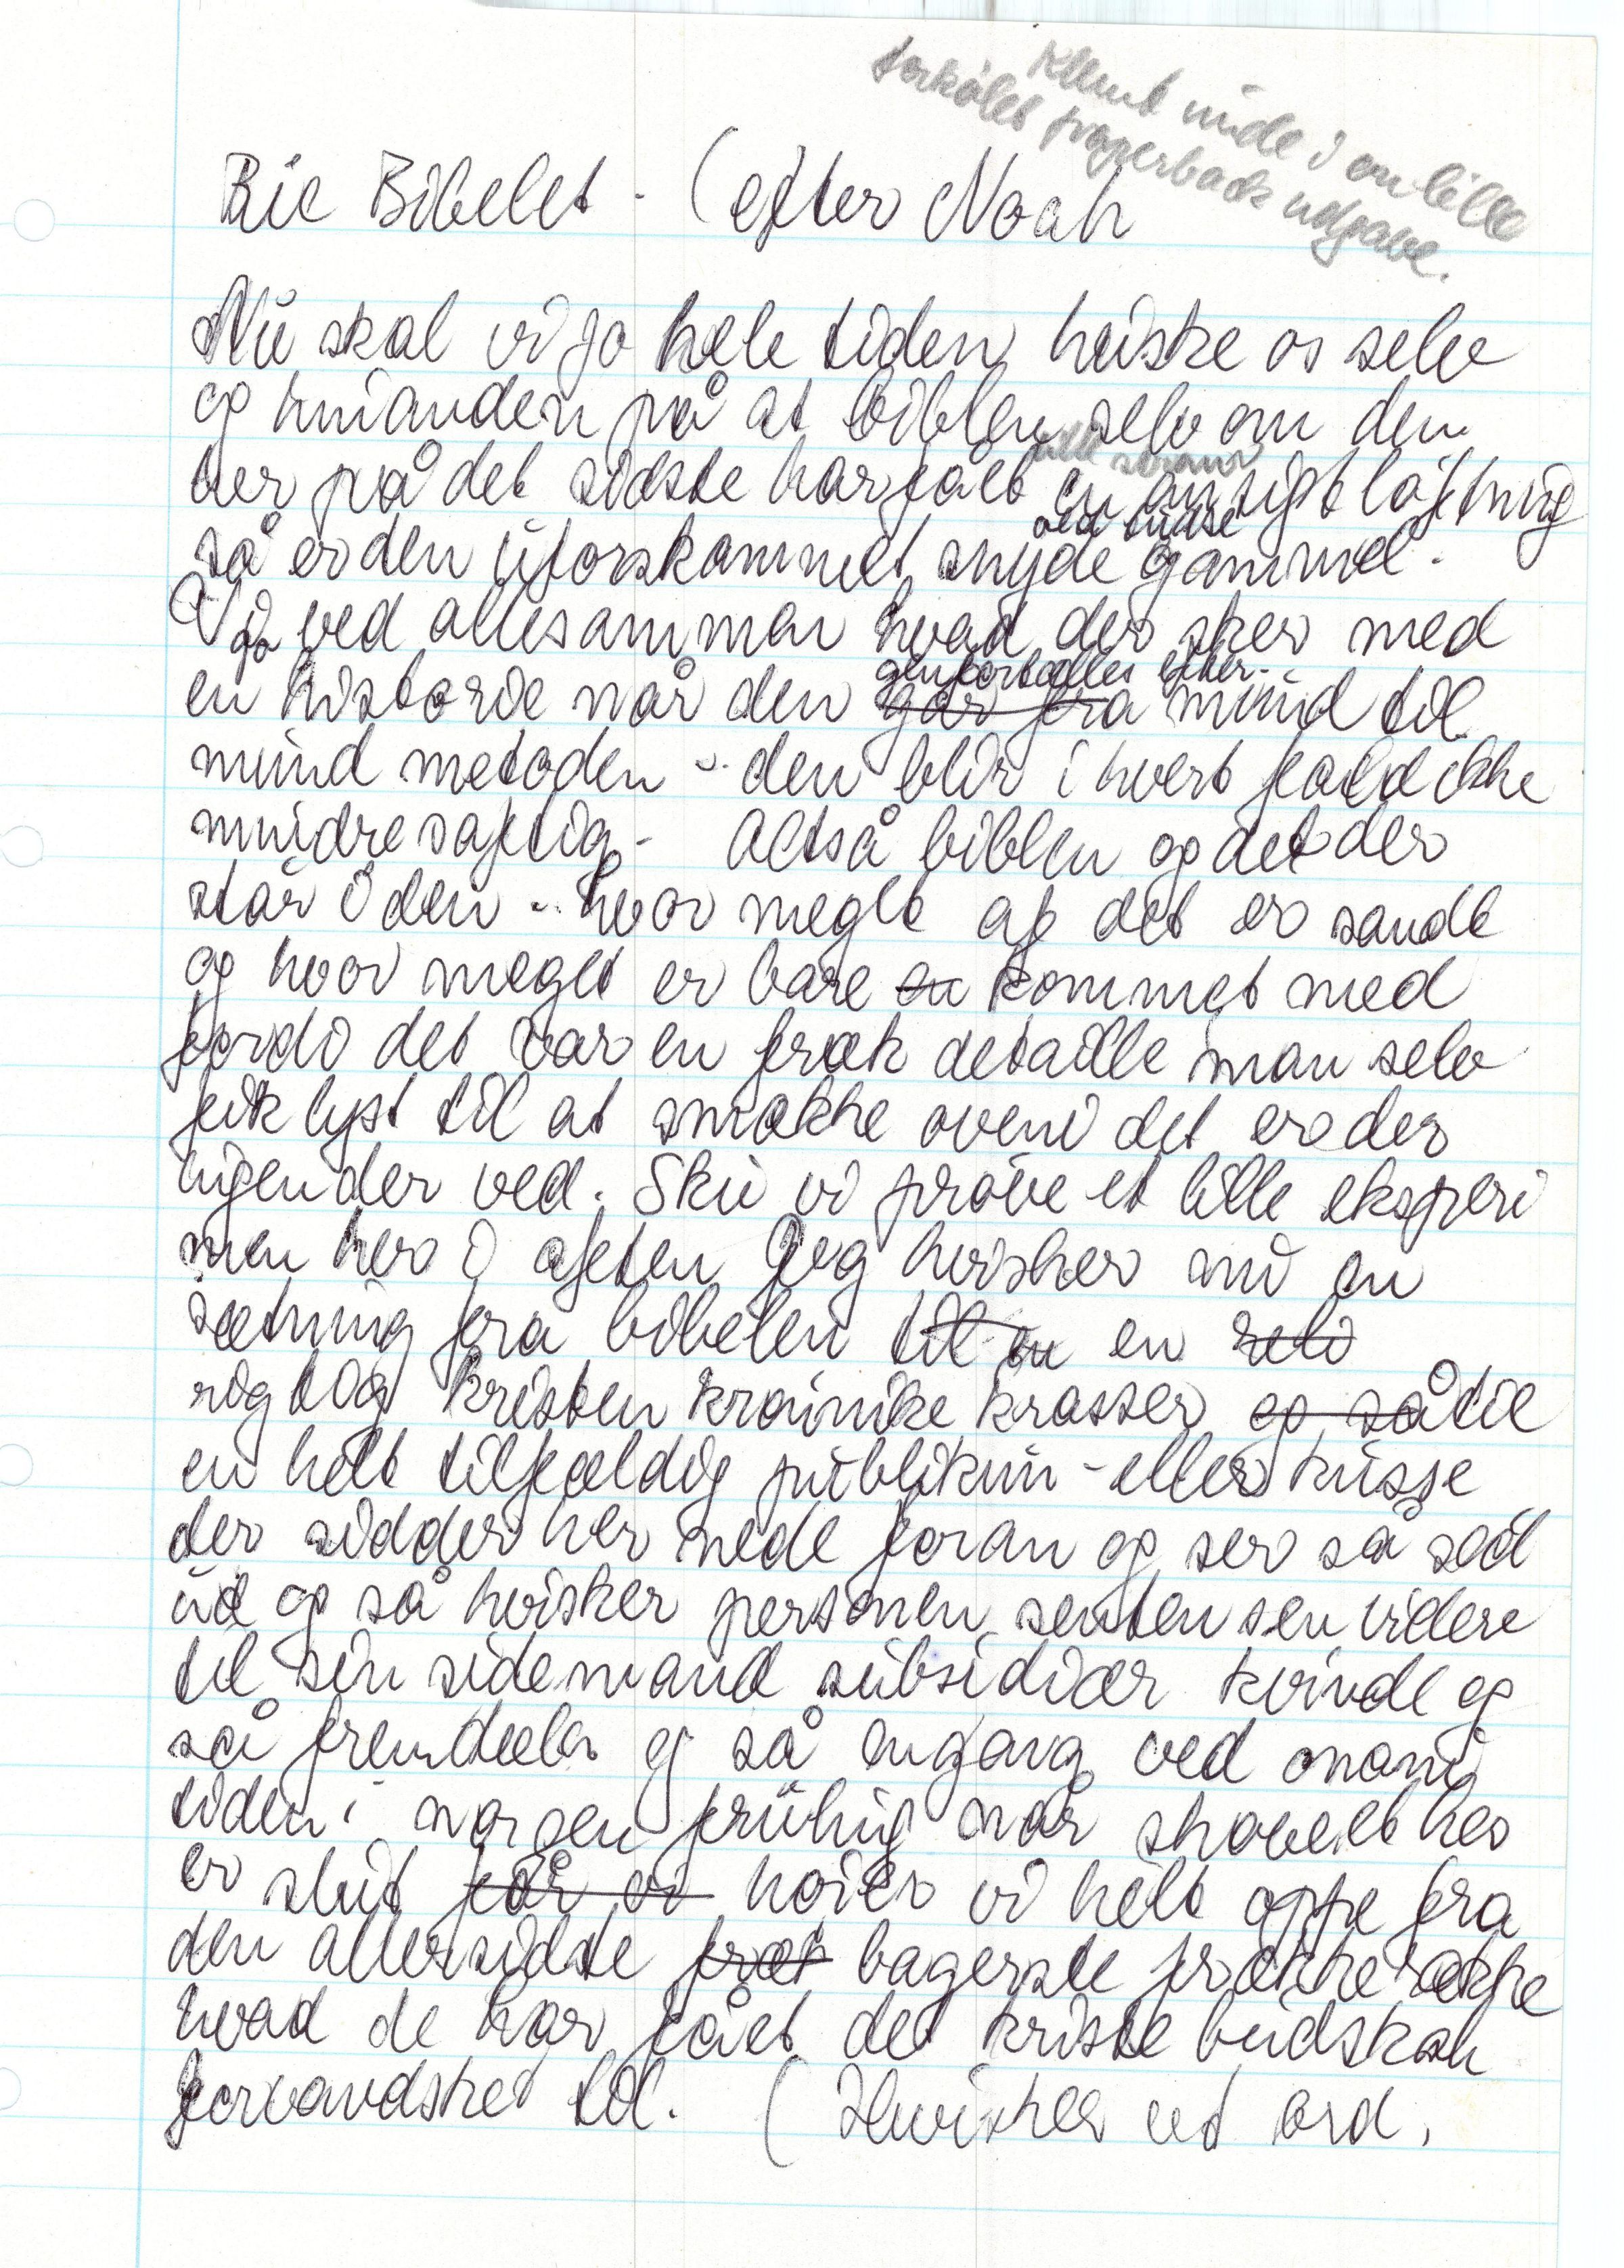 Klemt inde i en lille
forkølet paperback udgave.
Bibelet - (efter Noah
Nu skal vi jo hele tiden huske os selv
og hinanden på at biblen selv om den
her på det sidste har fået en ansigtsløftning
så er den uforskammet snyde gammel.
Vi jo ved allesammen hvad der sker med
en historie når den genfortælles efter
går fra mund til
mund metoden - den blir i hvert fald ikke
mindre saftig - Altså biblen og det der
står i den - hvor meget af det er sandt
og hvor meget er bare en kommet med
fordi det var en fræk detaille man selv
fik lyst til at smække oveni det er der
ingen der ved. Sku vi prøve et lille eksperi
men her i aften Jeg hvisker nu en
sætning fra bibelen til en en reli
rigtig kristen kronike krasser og så til
en helt tilfældig publikum - eller kusse
der sidder her nede foran og ser så sød
ud og så hvisker personen sentensen videre
til sin sidemand subsidiær kvinde og
så fremdeles og så engang ved onani
tiden i morgen frühig når showet her
er slut får vi hører vi helt oppe fra
den allersidste fræk bagerste frække række
hvad de har fået det kriste budskab
forvandsket til. (Hvisker et ord.